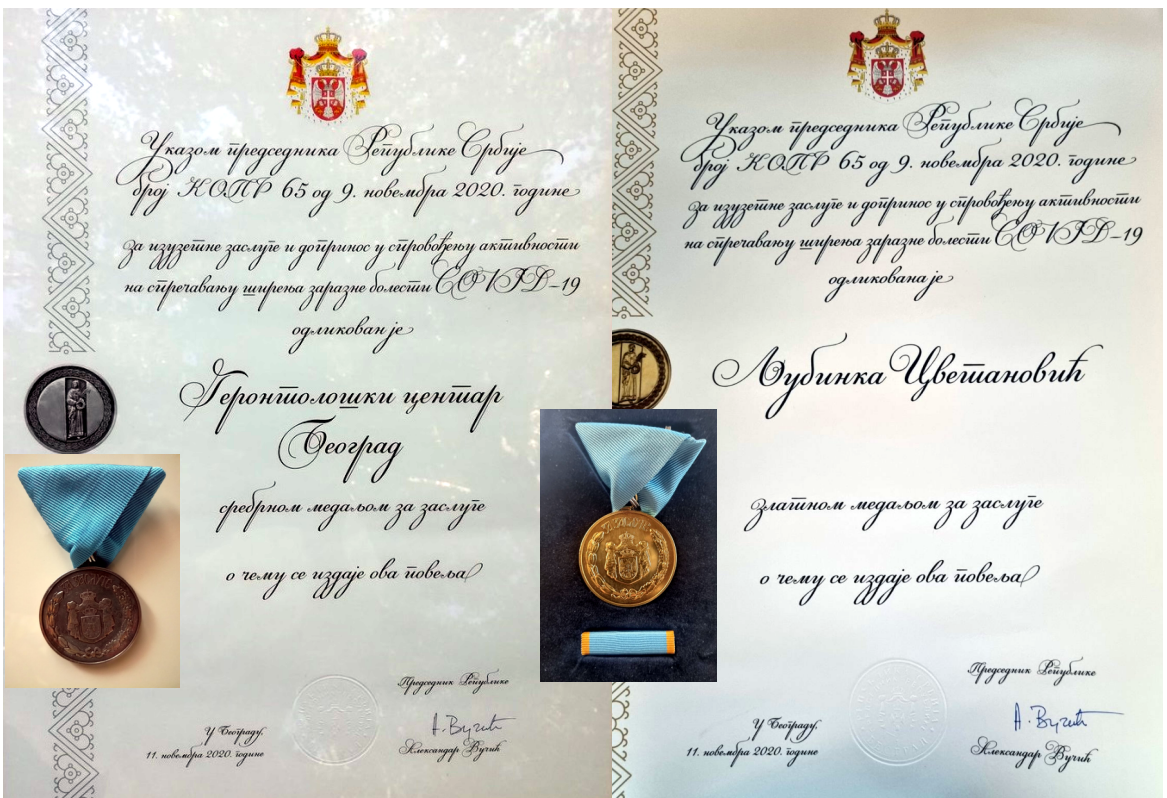 Указом председника Републике Србије
број КОПР 65 од 9. новембра 2020. године
за изузетне заслуге и допринос у спровођењу активности
на спречавању ширења заразне болести COVID-19
одликован је
Геронтолошки центар
Београд
сребрном медаљом за заслуге
о чему се издаје ова повеља
Председник Републике
У Београду,
11. новембра 2020. године
А. Вучић
Александар Вучић
Указом председника Републике Србије
број КОПР 65 од 9. новембра 2020. године
за изузетне заслуге и допринос у спровођењу активности
на спречавању ширења заразне болести COVID-19
одликована је
Љубинка Цветановић
златном медаљом за заслуге
о чему се издаје ова повеља
Председник Републике
У Београду,
11. новембра 2020. године
А. Вучић
Александар Вучић
ЗА ЗАСЛУГЕ
ЗА ЗАСЛУГЕ